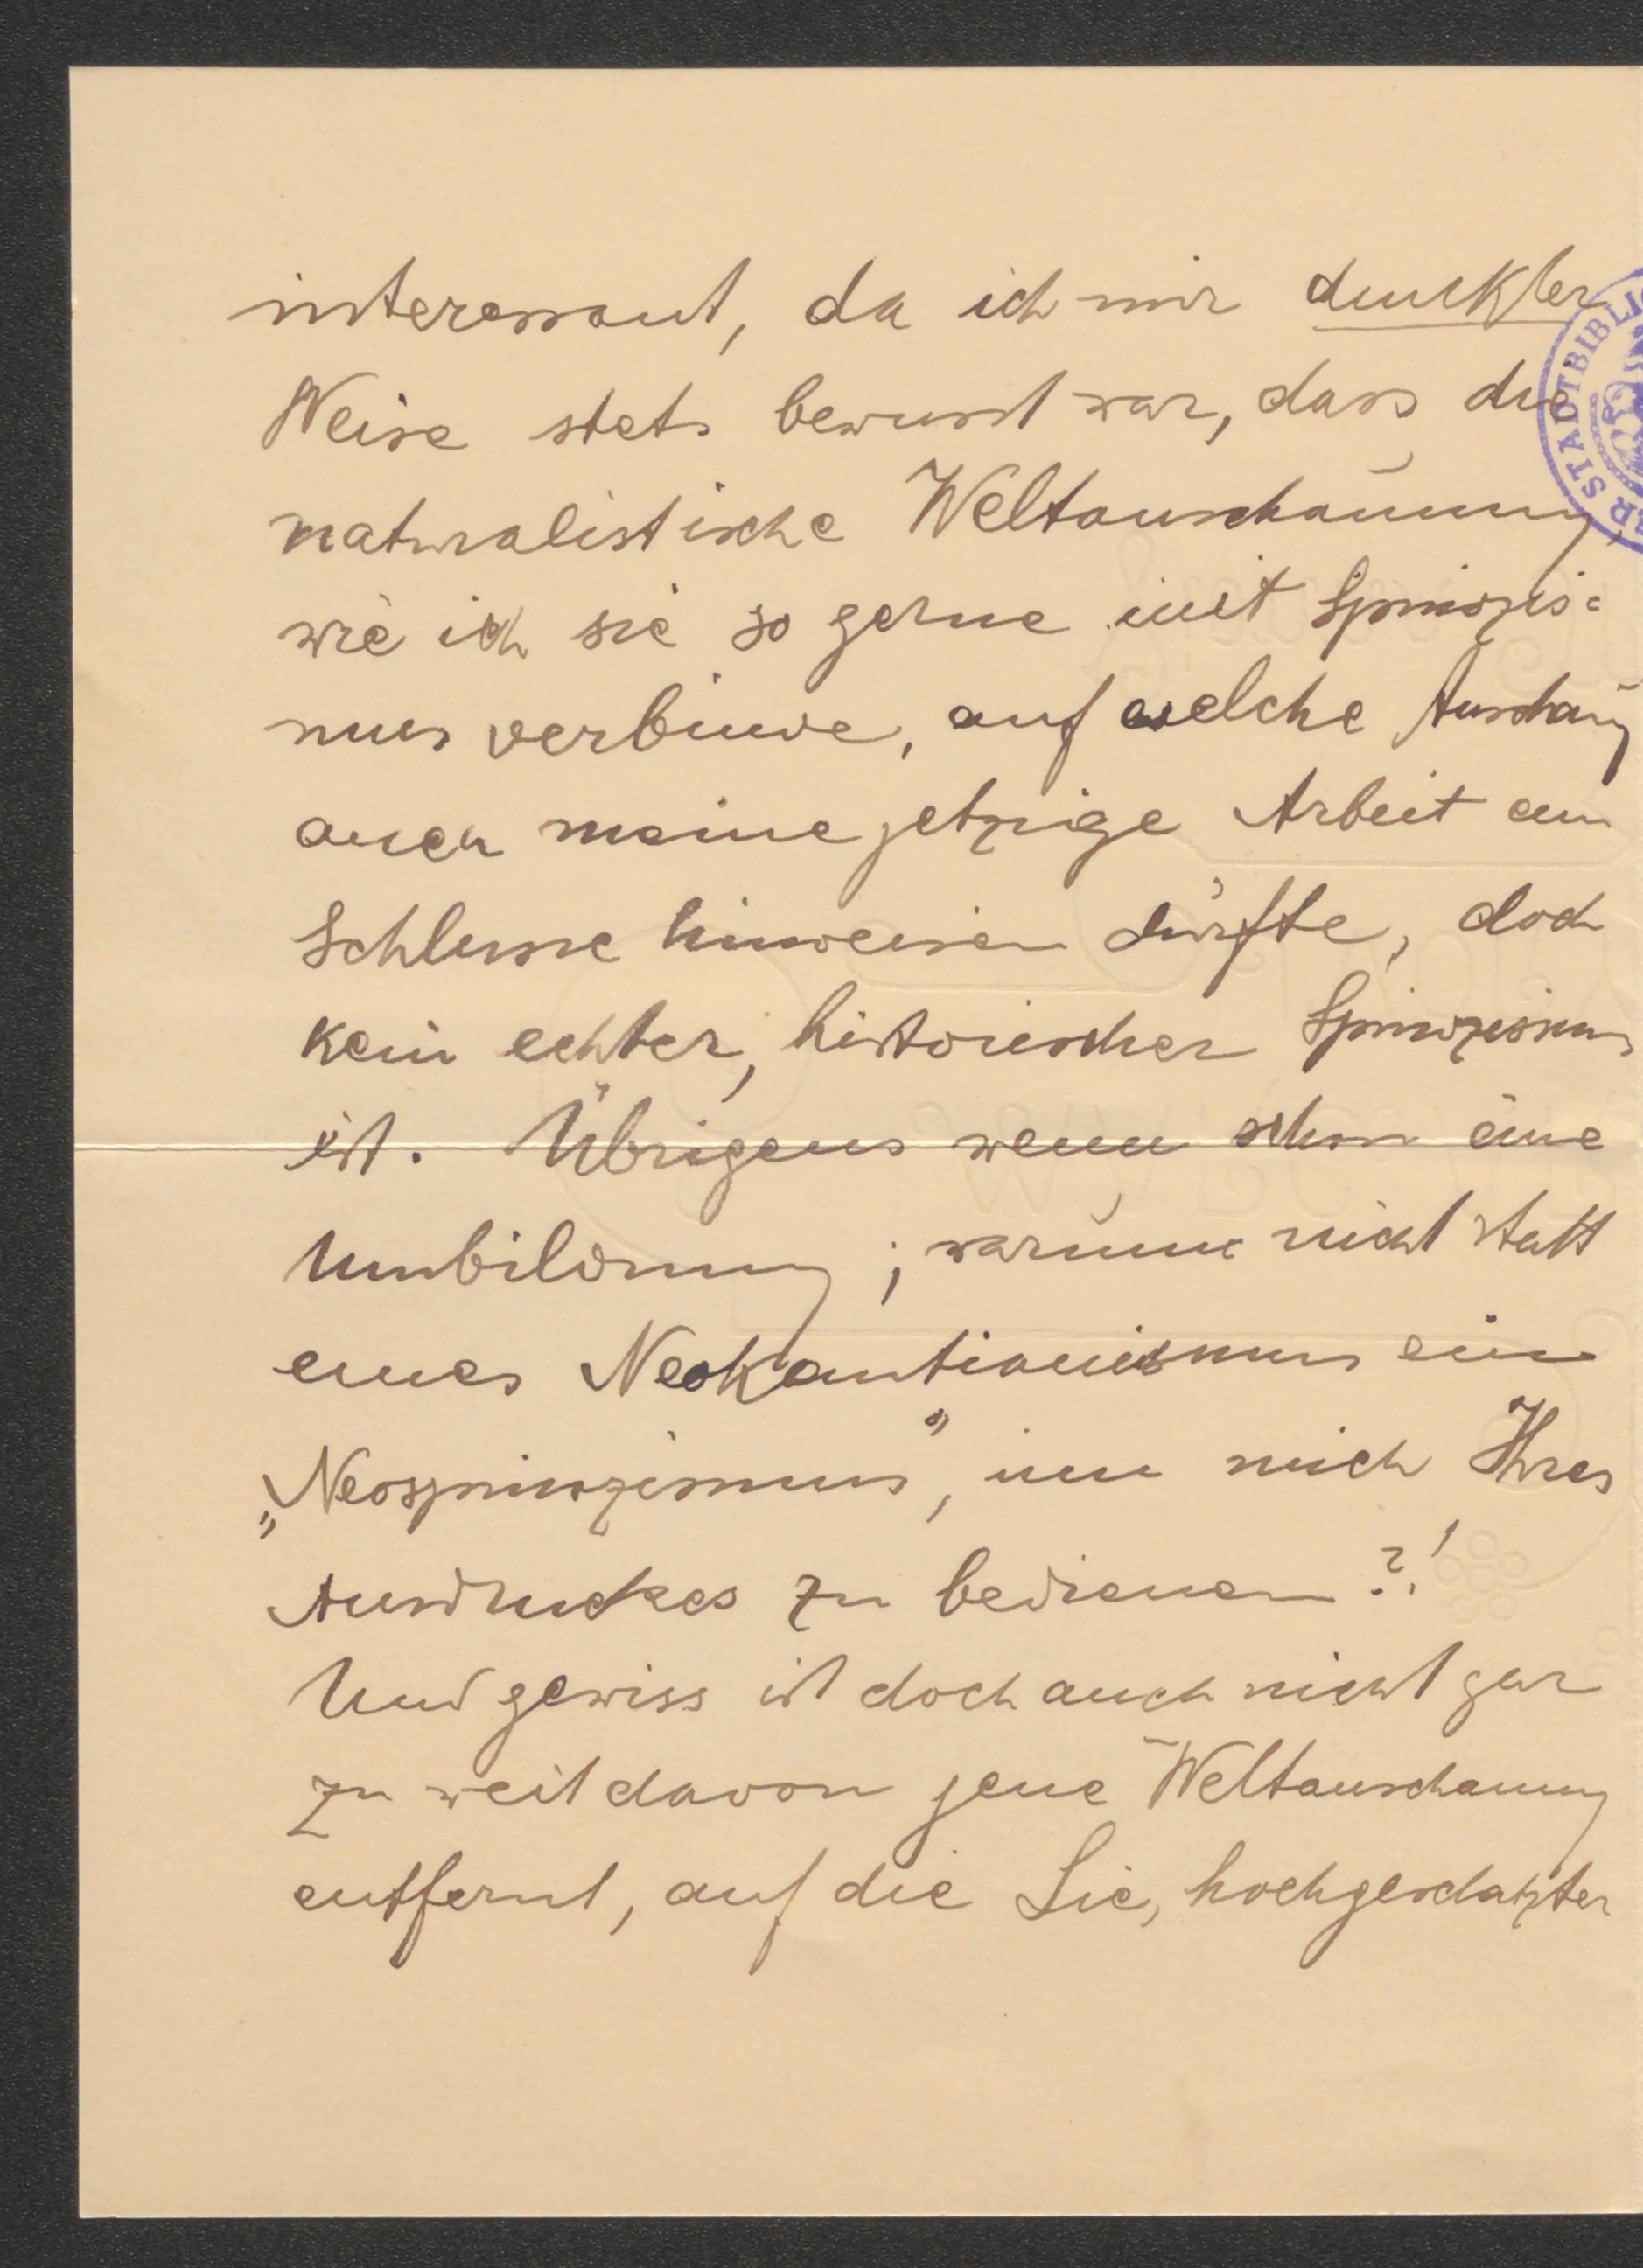 interessant, da ich mir dunkler
Weise stets bewusst war, dass die
naturalistische Weltanschauung,
wie ich sie so gerne mit Spinozis-
mus verbinde, auf welche Anschaug
auch meine jetzige Arbeit am
Schlusse hinweisen dürfte, doch
kein echter, historischer Spinozismus
ist. Übrigens wenn schon eine
Umbildung; warum nicht statt
eines Neokantianismus ein
„Neospinozismus“, um mich Ihres
Ausdruckes zu bedienen?!
Und gewiss ist doch auch nicht gar
zu weit davon jene Weltanschauung
entfernt, auf die Sie, hochgeschatzter
R STADTBIBLIO